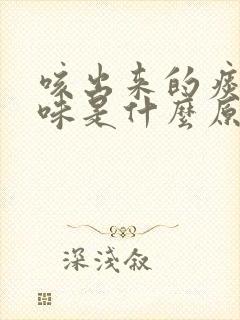 咳出来的痰
味是什麼原
深淺叙